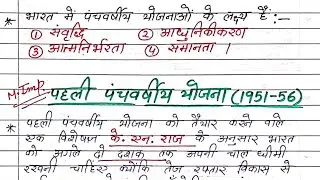 * भारत में पंचवर्षीय योजनाओं के लक्ष्य हैं:—
① संवृद्धि ② आधुनिकीकरण
③ आत्मनिर्भरता ④ समानता।
M.Imp
पहली पंचवर्षीय योजना (1951-56)
* पहली पंचवर्षीय योजना को तैयार करने वाले
एक विशेषज्ञ के. एन. राज के अनुसार भारत
को अगले दो दशक तक अपनी चाल धीमी
रखनी चाहिए क्योंकि तेज रफ्तार विकास से